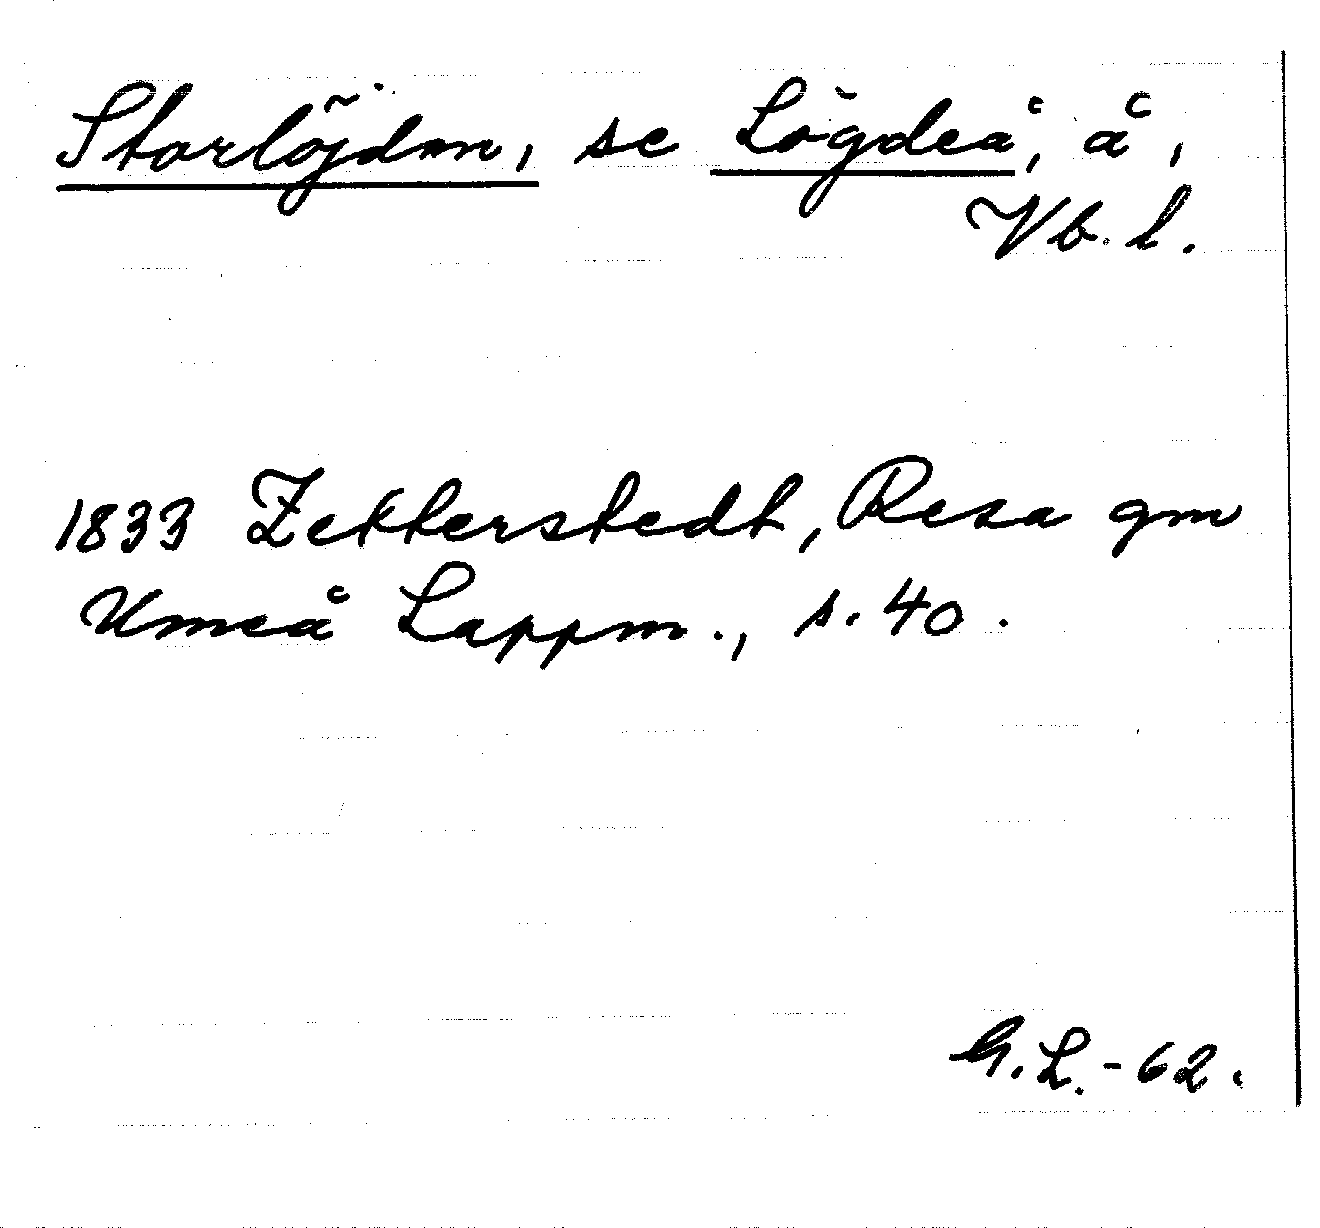 Storlöjdan, se Lögdeå, å,
Vb. l.
1833 Zetterstedt, Resa gm
Umeå Lappm., s. 40.
G. L. - 62.